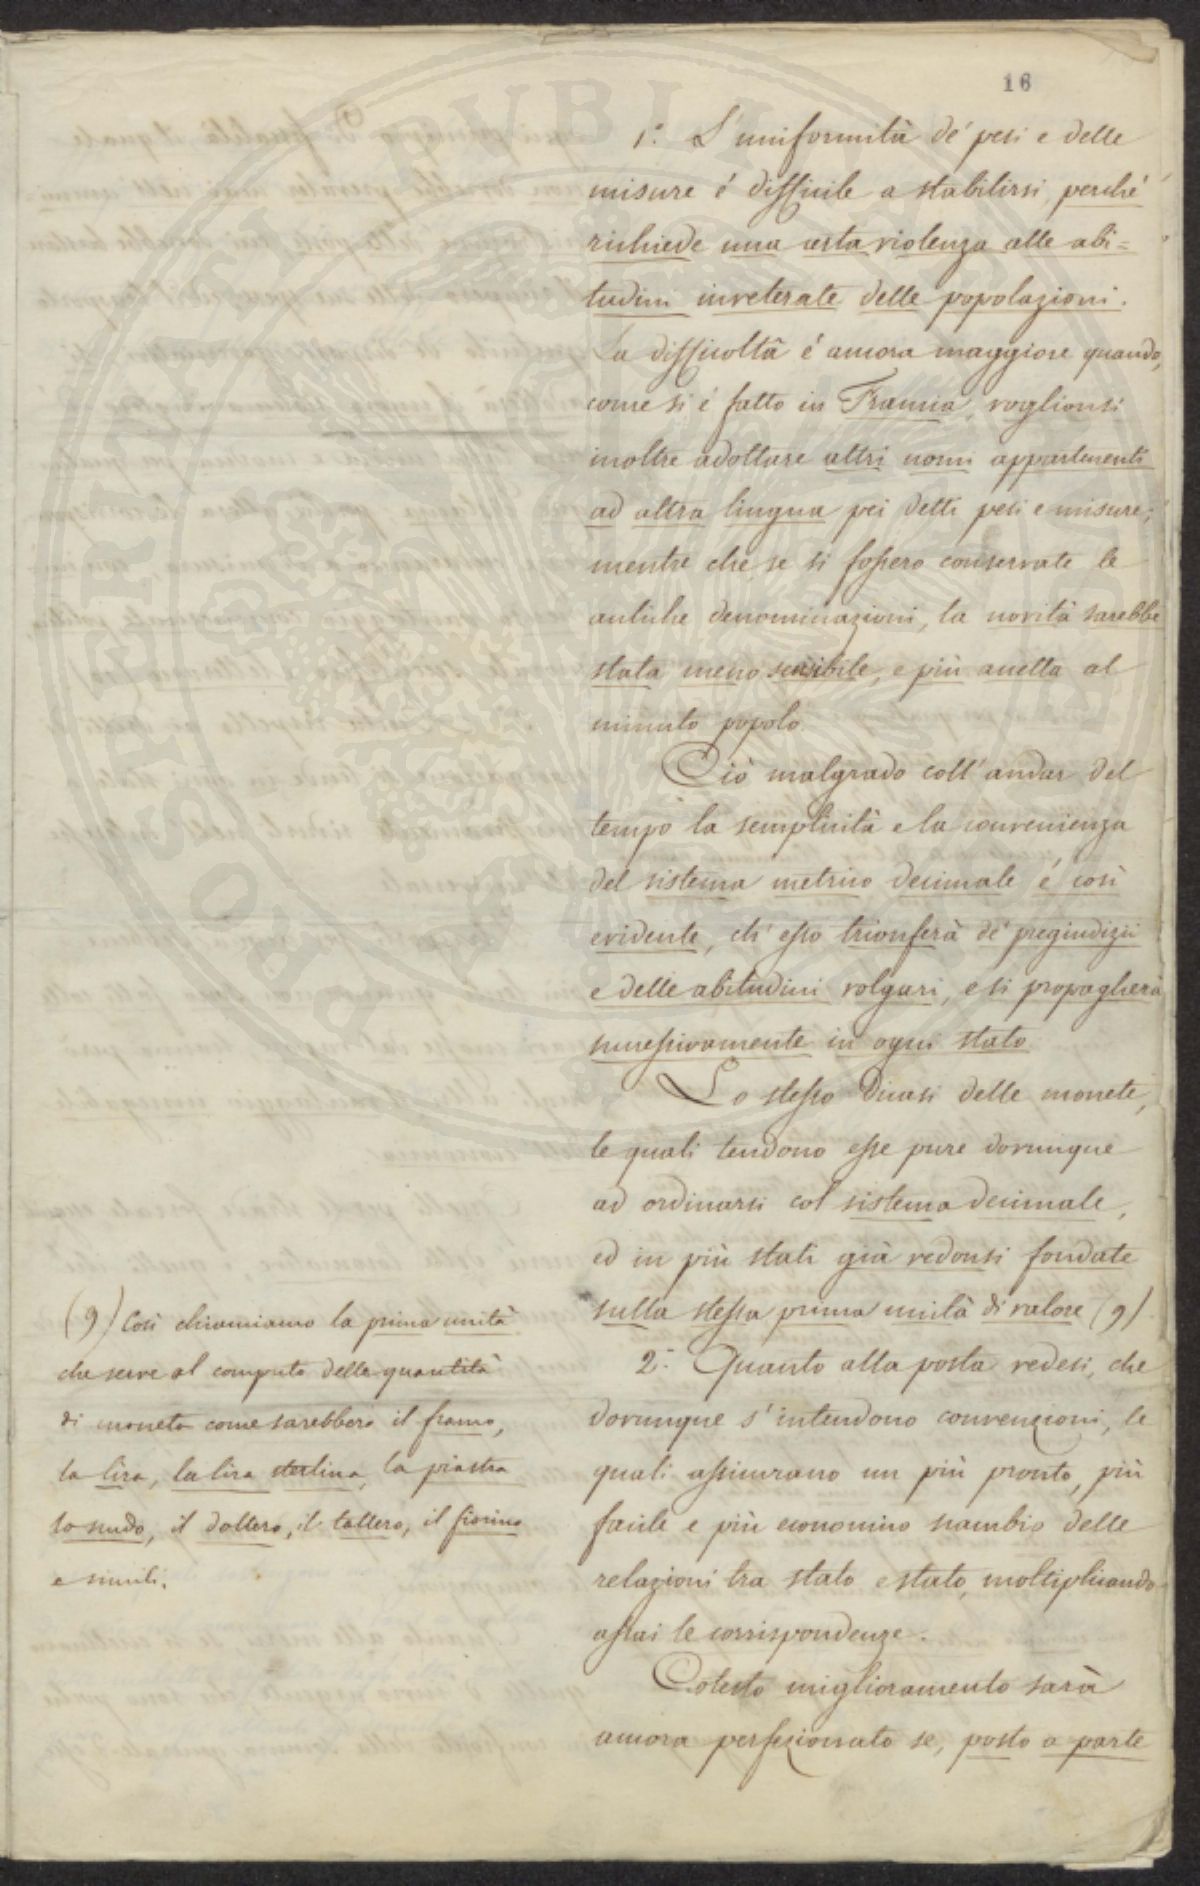 16
1.° L'uniformità de' pesi e delle
misure è difficile a stabilirsi, perché
richiede una certa violenza alle abi=
tudini inveterate delle popolazioni.
La difficoltà é ancora maggiore quando,
come si é fatto in Francia, voglionsi
inoltre adottare altri nomi appartenenti
ad altra lingua pei detti pesi e misure;
mentre che se si fossero conservate le
antiche denominazioni, la novità sarebbe
stata meno sensibile, e più accetta al
minuto popolo.
Ciò malgrado coll'andar del
tempo la semplicità e la convenienza
del sistema metrico decimale é così
evidente, ch'esso trionferà de' pregiudizii
e delle abitudini volgari, e si propagherà
successivamente in ogni stato.
Lo stesso dicasi delle monete,
le quali tendono esse pure dovunque
ad ordinarsi col sistema decimale,
ed in più stati già vedonsi fondate
sulla stessa prima unità di valore (9).
2.° Quanto alla posta vedesi, che
dovunque s'intendono convenzioni, le
quali assicurano un più pronto, più
facile e più economico scambio delle
relazioni tra stato e stato, moltiplicando
assai le corrispondenze.
Cotesto miglioramento sarà
ancora perfezionato se, posto a parte
(9) Così chiamiamo la prima unità
che serve al computo delle quantità
di moneta come sarebbero il franco,
la lira, la lira sterlina, la piastra
lo scudo, il dollero, il tallero, il fiorino
e simili.
POPVLI PERVSINI PVBLICA